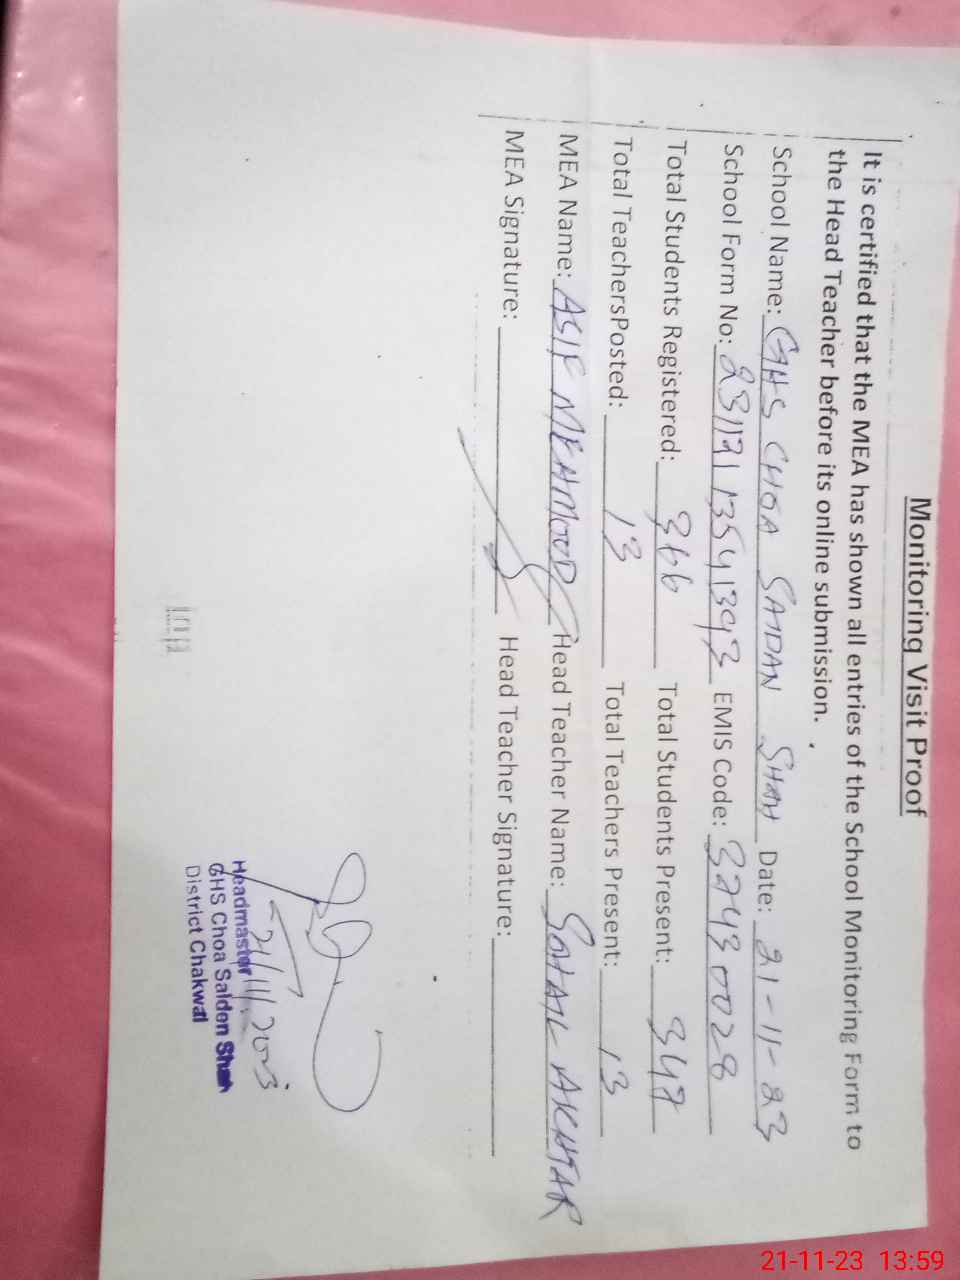 Monitoring Visit Proof
It is certified that the MEA has shown all entries of the School Monitoring Form to
the Head Teacher before its online submission.
School Name: GHS CHOA SAIDAN SHAH Date: 21-11-23
School Form No: EMIS Code: 37430028
Total Students Registered: 366 Total Students Present: 347
Total TeachersPosted: 13 Total Teachers Present: 13
MEA Name: ASIF MEHMOOD Head Teacher Name: SOHAIL AKHTAR
MEA Signature: Head Teacher Signature:
21/11/2023
Headmaster
GHS Choa Saidon Shah
District Chakwal
21-11-23 13:59